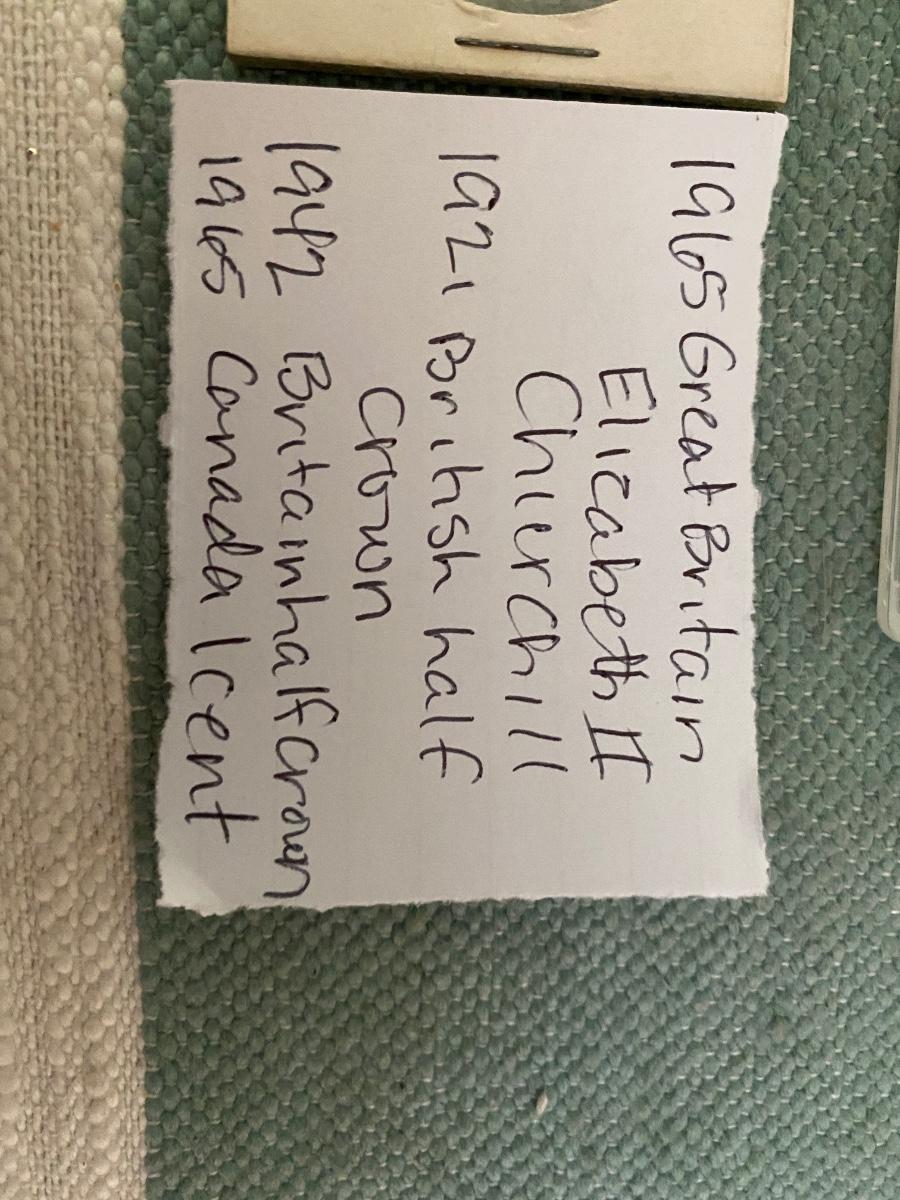 1965 Great Britain
Elizabeth II
Chierchill
1921 British half
crown
1942 Britain half crown
1965 Canada 1 cent